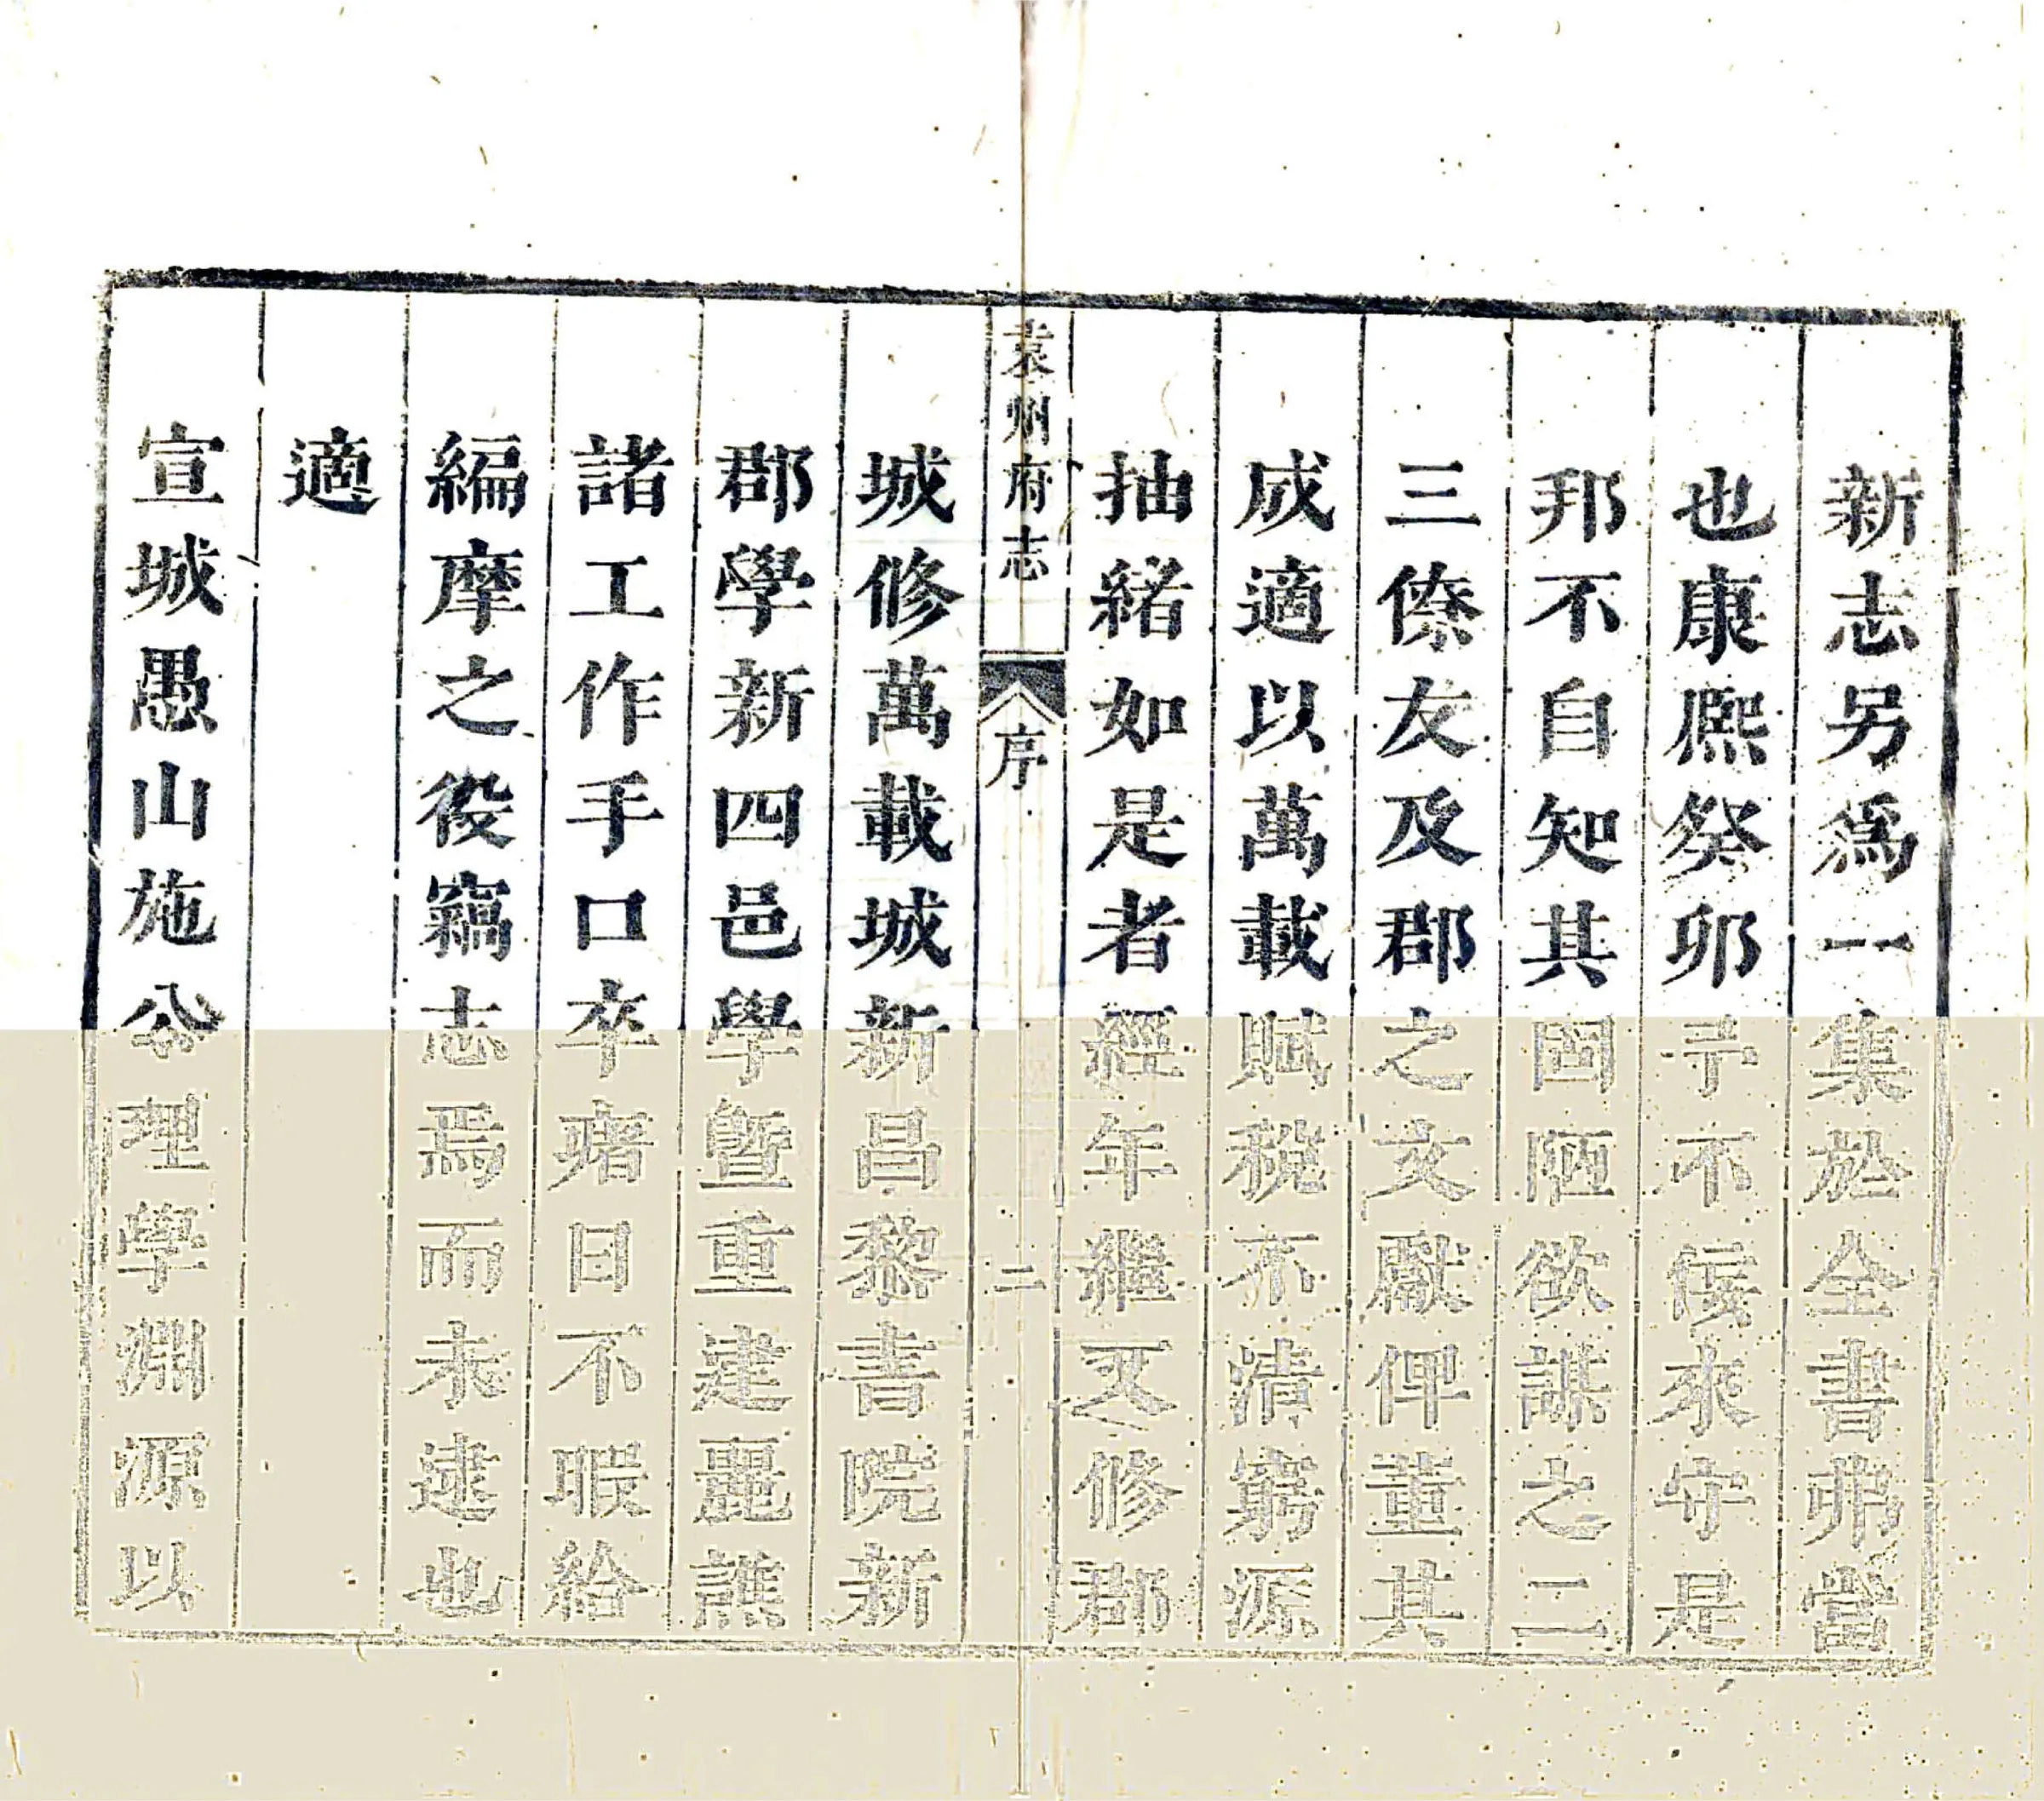 新志另爲一集於全書弗當
也康熈癸卯予不佞來守是
邦不自知其固陋欲謀之二
三僚友及郡之文獻俾董其
成適以萬載賦稅不清窮源
抽緒如是者經年繼又修郡
袁州府志 序 二
城修萬載城新昌黎書院新
郡學新四邑學曁重建麗譙
諸工作手口卒瘏日不暇給
編摩之役竊志焉而未逮也
適
宣城愚山施公理學淵源以